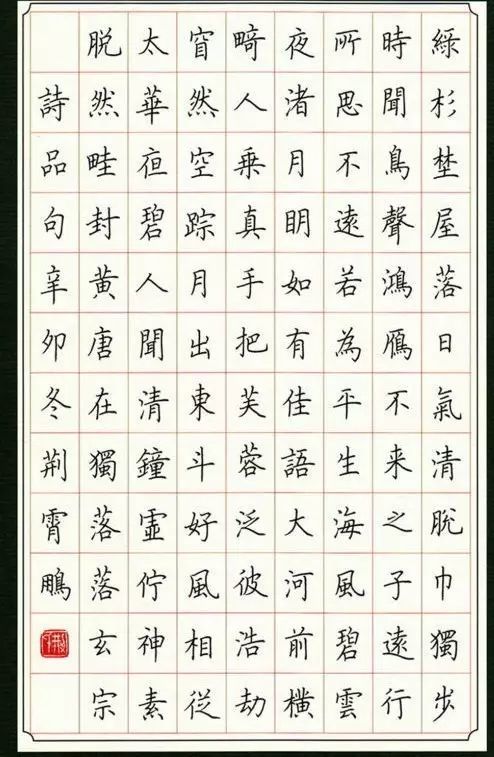 綠杉埜屋落日氣清脫巾獨步
時聞鳥聲鴻鴈不来之子遠行
所思不遠若為平生海風碧雲
夜渚月眀如有佳語大河前橫
畸人乗真手把芙蓉泛彼浩劫
窅然空踪月出東斗好風相從
太華夜碧人聞清鐘虛佇神素
脫然畦封黃唐在獨落落玄宗
詩品句辛卯冬荆霄鵬